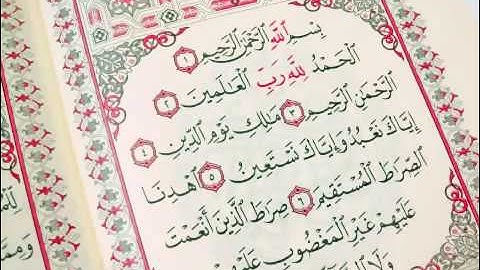 بِسْمِ اللَّهِ الرَّحْمَٰنِ الرَّحِيمِ ١
الْحَمْدُ لِلَّهِ رَبِّ الْعَالَمِينَ ٢
الرَّحْمَٰنِ الرَّحِيمِ ٣ مَالِكِ يَوْمِ الدِّينِ ٤
إِيَّاكَ نَعْبُدُ وَإِيَّاكَ نَسْتَعِينُ ٥ اهْدِنَا
الصِّرَاطَ الْمُسْتَقِيمَ ٦ صِرَاطَ الَّذِينَ أَنْعَمْتَ
عَلَيْهِمْ غَيْرِ الْمَغْضُوبِ عَلَيْهِمْ
وَلَا